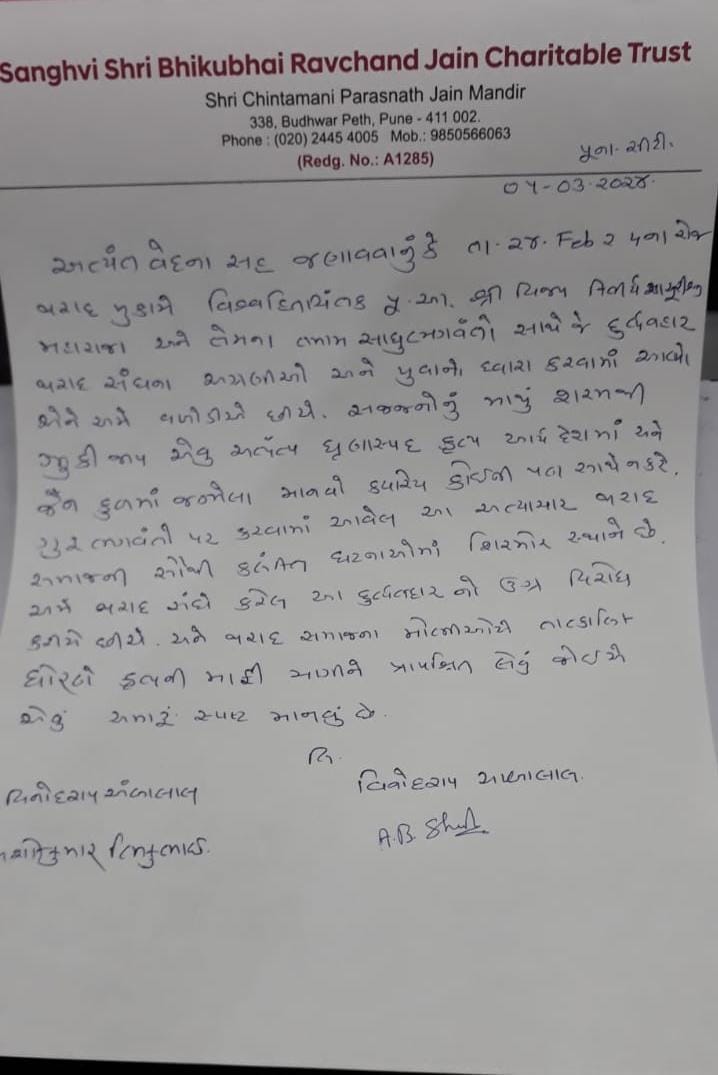 Sanghvi Shri Bhikubhai Ravchand Jain Charitable Trust
Shri Chintamani Parasnath Jain Mandir
338, Budhwar Peth, Pune - 411 002.
Phone : (020) 2445 4005 Mob.: 9850566063
(Redg. No.: A1285)
પૂના. સીટી.
-03-202
અત્યંત વેદના સહ જણાવવાનું કે તા. ૨૪. Feb ના રોજ
થરાદ મુકામે વિશ્વહિતચિંતક પૂ. આ. શ્રી વિજય
મહારાજા અને તેમના તમામ સાધુભગવંતો સાથે જે દુર્વ્યવહાર
થરાદ સંઘના અને યુવાનો દ્વારા કરવામાં આવ્યો
એને અમે વખોડીએ છીએ. સજ્જનોનું માથું શરમથી
ઝુકી જાય એવુ અત્યંત ધૃણાસ્પદ કૃત્ય આર્ય દેશમાં અને
જૈન કુળમાં જન્મેલા માનવો ક્યારેય કોઇની પણ સાથે ન કરે.
ગુરુ ભગવંતો પર કરવામાં આવેલ આ અત્યાચાર થરાદ
સમાજની સૌથી ઘટનાઓમાં શિરમોર સ્થાને છે.
અમે થરાદ સંઘે કરેલ આ દુર્વ્યવહાર નો ઉગ્ર વિરોધ
કરીએ છીએ. અને થરાદ સમાજના મોભીઓએ તાત્કાલિક
ધોરણે માફી પ્રાયશ્ચિત લેવું જોઇએ
એવું અમારૂં સ્પષ્ટ માનવું છે.
લિ.
વિનોદરાય
વિનોદરાય
A.B. Shah